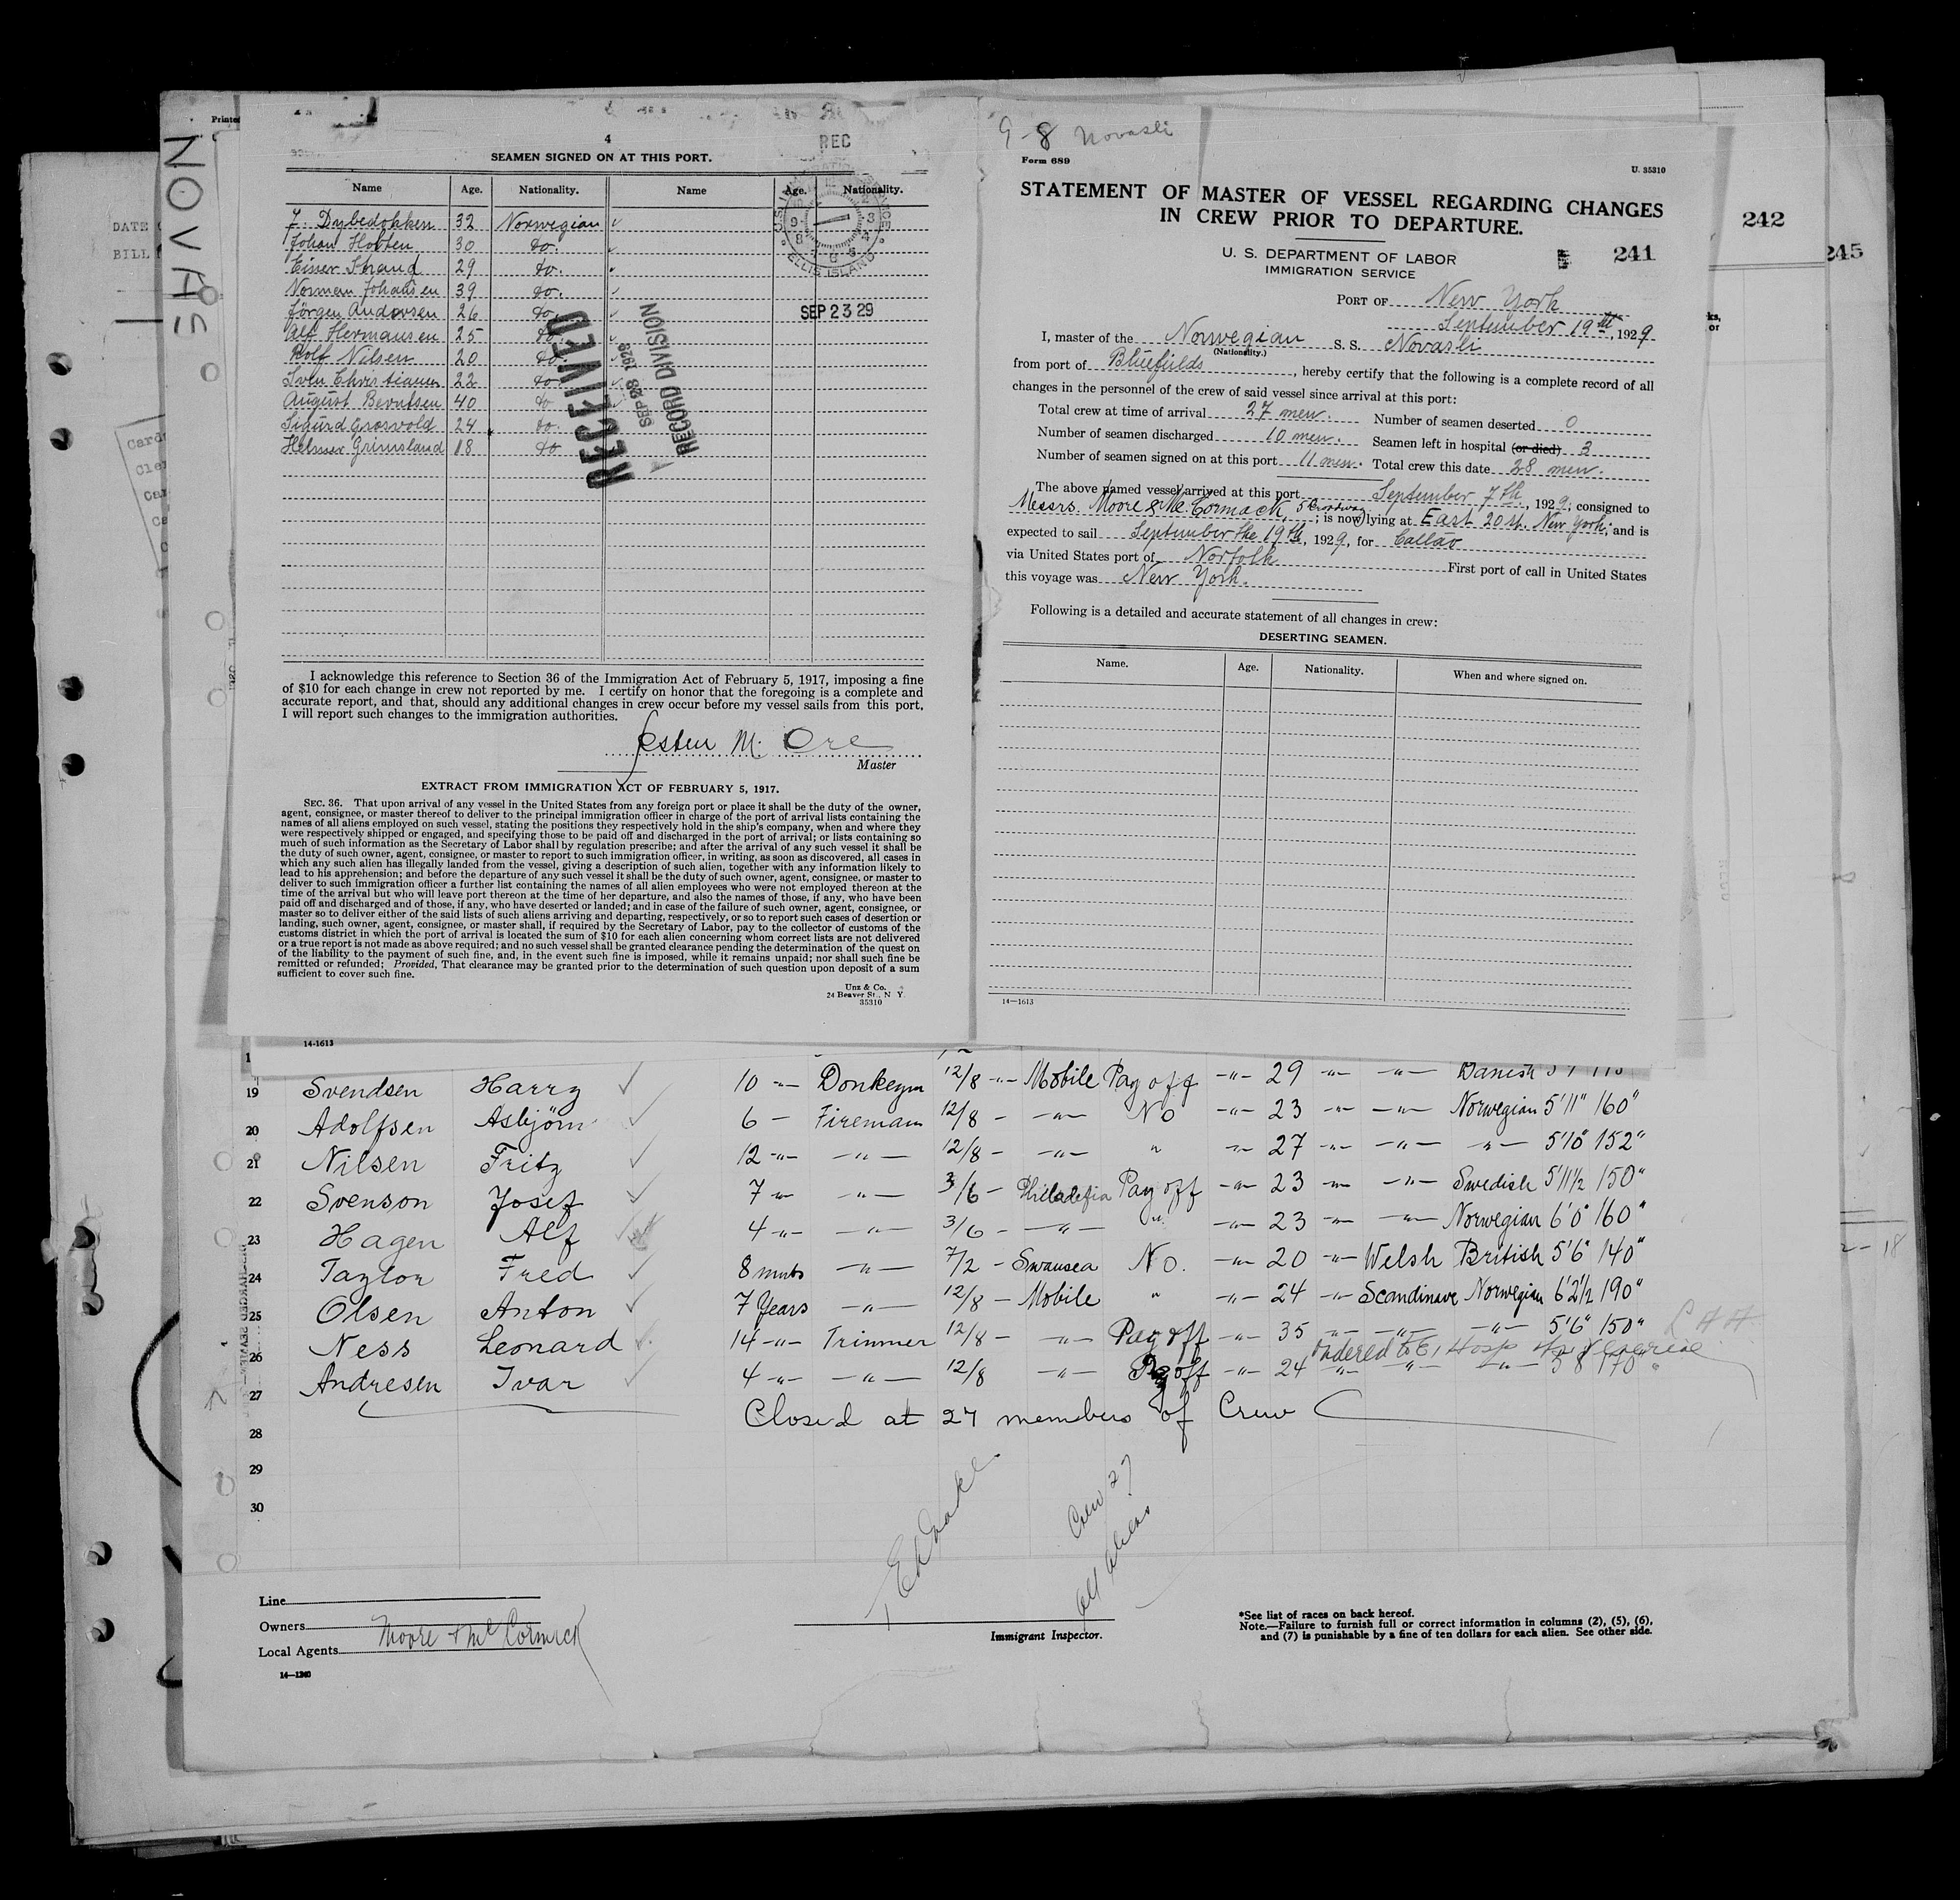 NOVAS
4
REC
SEAMEN SIGNED ON AT THIS PORT.
Name Age. Nationality. Name Age. Nationality.
Dybedokken 32 Norwegian
Johan Hovten 30 do.
Einer Strand 29 do.
Norman Johansen 39 do.
Jörgen Andersen 26 do
Alf Hermansen 25 do
Rolf Nilsen 20 do
Sven Christiansen 22 do
August Berntsen 40 do
Sigurd Grosvold 24 do.
Helmer Grimsland 18 do
ELLIS ISLAND
SEP 23 29
RECEIVED
SEP 28 1929
RECORD DIVISION
I acknowledge this reference to Section 36 of the Immigration Act of February 5, 1917, imposing a fine
of $10 for each change in crew not reported by me. I certify on honor that the foregoing is a complete and
accurate report, and that, should any additional changes in crew occur before my vessel sails from this port,
I will report such changes to the immigration authorities.
M. Ore
Master
EXTRACT FROM IMMIGRATION ACT OF FEBRUARY 5, 1917.
SEC. 36. That upon arrival of any vessel in the United States from any foreign port or place it shall be the duty of the owner,
agent, consignee, or master thereof to deliver to the principal immigration officer in charge of the port of arrival lists containing the
names of all aliens employed on such vessel, stating the positions they respectively hold in the ship's company, when and where they
were respectively shipped or engaged, and specifying those to be paid off and discharged in the port of arrival; or lists containing so
much of such information as the Secretary of Labor shall by regulation prescribe; and after the arrival of any such vessel it shall be
the duty of such owner, agent, consignee, or master to report to such immigration officer, in writing, as soon as discovered, all cases in
which any such alien has illegally landed from the vessel, giving a description of such alien, together with any information likely to
lead to his apprehension; and before the departure of any such vessel it shall be the duty of such owner, agent, consignee, or master to
deliver to such immigration officer a further list containing the names of all alien employees who were not employed thereon at the
time of the arrival but who will leave port thereon at the time of her departure, and also the names of those, if any, who have been
paid off and discharged and of those, if any, who have deserted or landed; and in case of the failure of such owner, agent, consignee, or
master so to deliver either of the said lists of such aliens arriving and departing, respectively, or so to report such cases of desertion or
landing, such owner, agent, consignee, or master shall, if required by the Secretary of Labor, pay to the collector of customs of the
customs district in which the port of arrival is located the sum of $10 for each alien concerning whom correct lists are not delivered
or a true report is not made as above required; and no such vessel shall be granted clearance pending the determination of the quest on
of the liability to the payment of such fine, and, in the event such fine is imposed, while it remains unpaid; nor shall such fine be
remitted or refunded; Provided, That clearance may be granted prior to the determination of such question upon deposit of a sum
sufficient to cover such fine.
Unz & Co.
24 Beaver St., N Y.
35310
14-1613
9-8 Novasli
Form 689
U. 35310
STATEMENT OF MASTER OF VESSEL REGARDING CHANGES
IN CREW PRIOR TO DEPARTURE.
U. S. DEPARTMENT OF LABOR
IMMIGRATION SERVICE
241
242
245
PORT OF New York
September 19th, 1929
I, master of the Norwegian S. S. Novasli
(Nationality.)
from port of Bluefields, hereby certify that the following is a complete record of all
changes in the personnel of the crew of said vessel since arrival at this port:
Total crew at time of arrival 27 men. Number of seamen deserted 0
Number of seamen discharged 10 men. Seamen left in hospital (or died) 3
Number of seamen signed on at this port 11 men. Total crew this date 28 men.
The above named vessel arrived at this port September 7th, 1929; consigned to
Messrs. Moore & Mc Cormack, 5 Broadway; is now lying at East 20 st. New York; and is
expected to sail September the 19th, 1929, for Callao
via United States port of Norfolk First port of call in United States
this voyage was New York.
Following is a detailed and accurate statement of all changes in crew:
DESERTING SEAMEN.
Name. Age. Nationality. When and where signed on.
14—1613
19 Svendsen Harry 10 -"- Donkeym 12/8 -"- Mobile Pay off -"- 29 -"- -"- Danish
20 Adolfsen Asbjörn 6 - Fireman 12/8 - -"- No -"- 23 -"- -"- Norwegian 5'11" 160"
21 Nilsen Fritz 12 -"- -"- 12/8 - -"- " -"- 27 -"- -"- -"- 5'10" 152"
22 Svenson Josef 7 -"- -"- 3/6 - Philadefia Pay off -"- 23 -"- -"- Swedish 5'11½ 150"
23 Hagen Alf 4 -"- -"- 3/6 - -"- " -"- 23 -"- -"- Norwegian 6'0" 160"
24 Taylor Fred 8 mnts -"- 7/2 - Swansea No. -"- 20 -"- Welsh British 5'6" 140"
25 Olsen Anton 7 Years -"- 12/8 - Mobile " -"- 24 -"- Scandinave Norwegian 6'2½ 190"
26 Ness Leonard 14 -"- Trimmer 12/8 - -"- Pay off -"- 35 -"- -"- -"- 5'6" 150"
Ordered to E I Hosp
27 Andresen Ivar 4 -"- -"- 12/8 -"- Pay off -"- 24 -"- -"- -"- 5'8 170"
28 Closed at 27 members of Crew
29
30
Crew 27
all aliens
Line
Owners
Local Agents Moore & Mc Cormack
14—1240
Immigrant Inspector.
*See list of races on back hereof.
Note.—Failure to furnish full or correct information in columns (2), (5), (6),
and (7) is punishable by a fine of ten dollars for each alien. See other side.